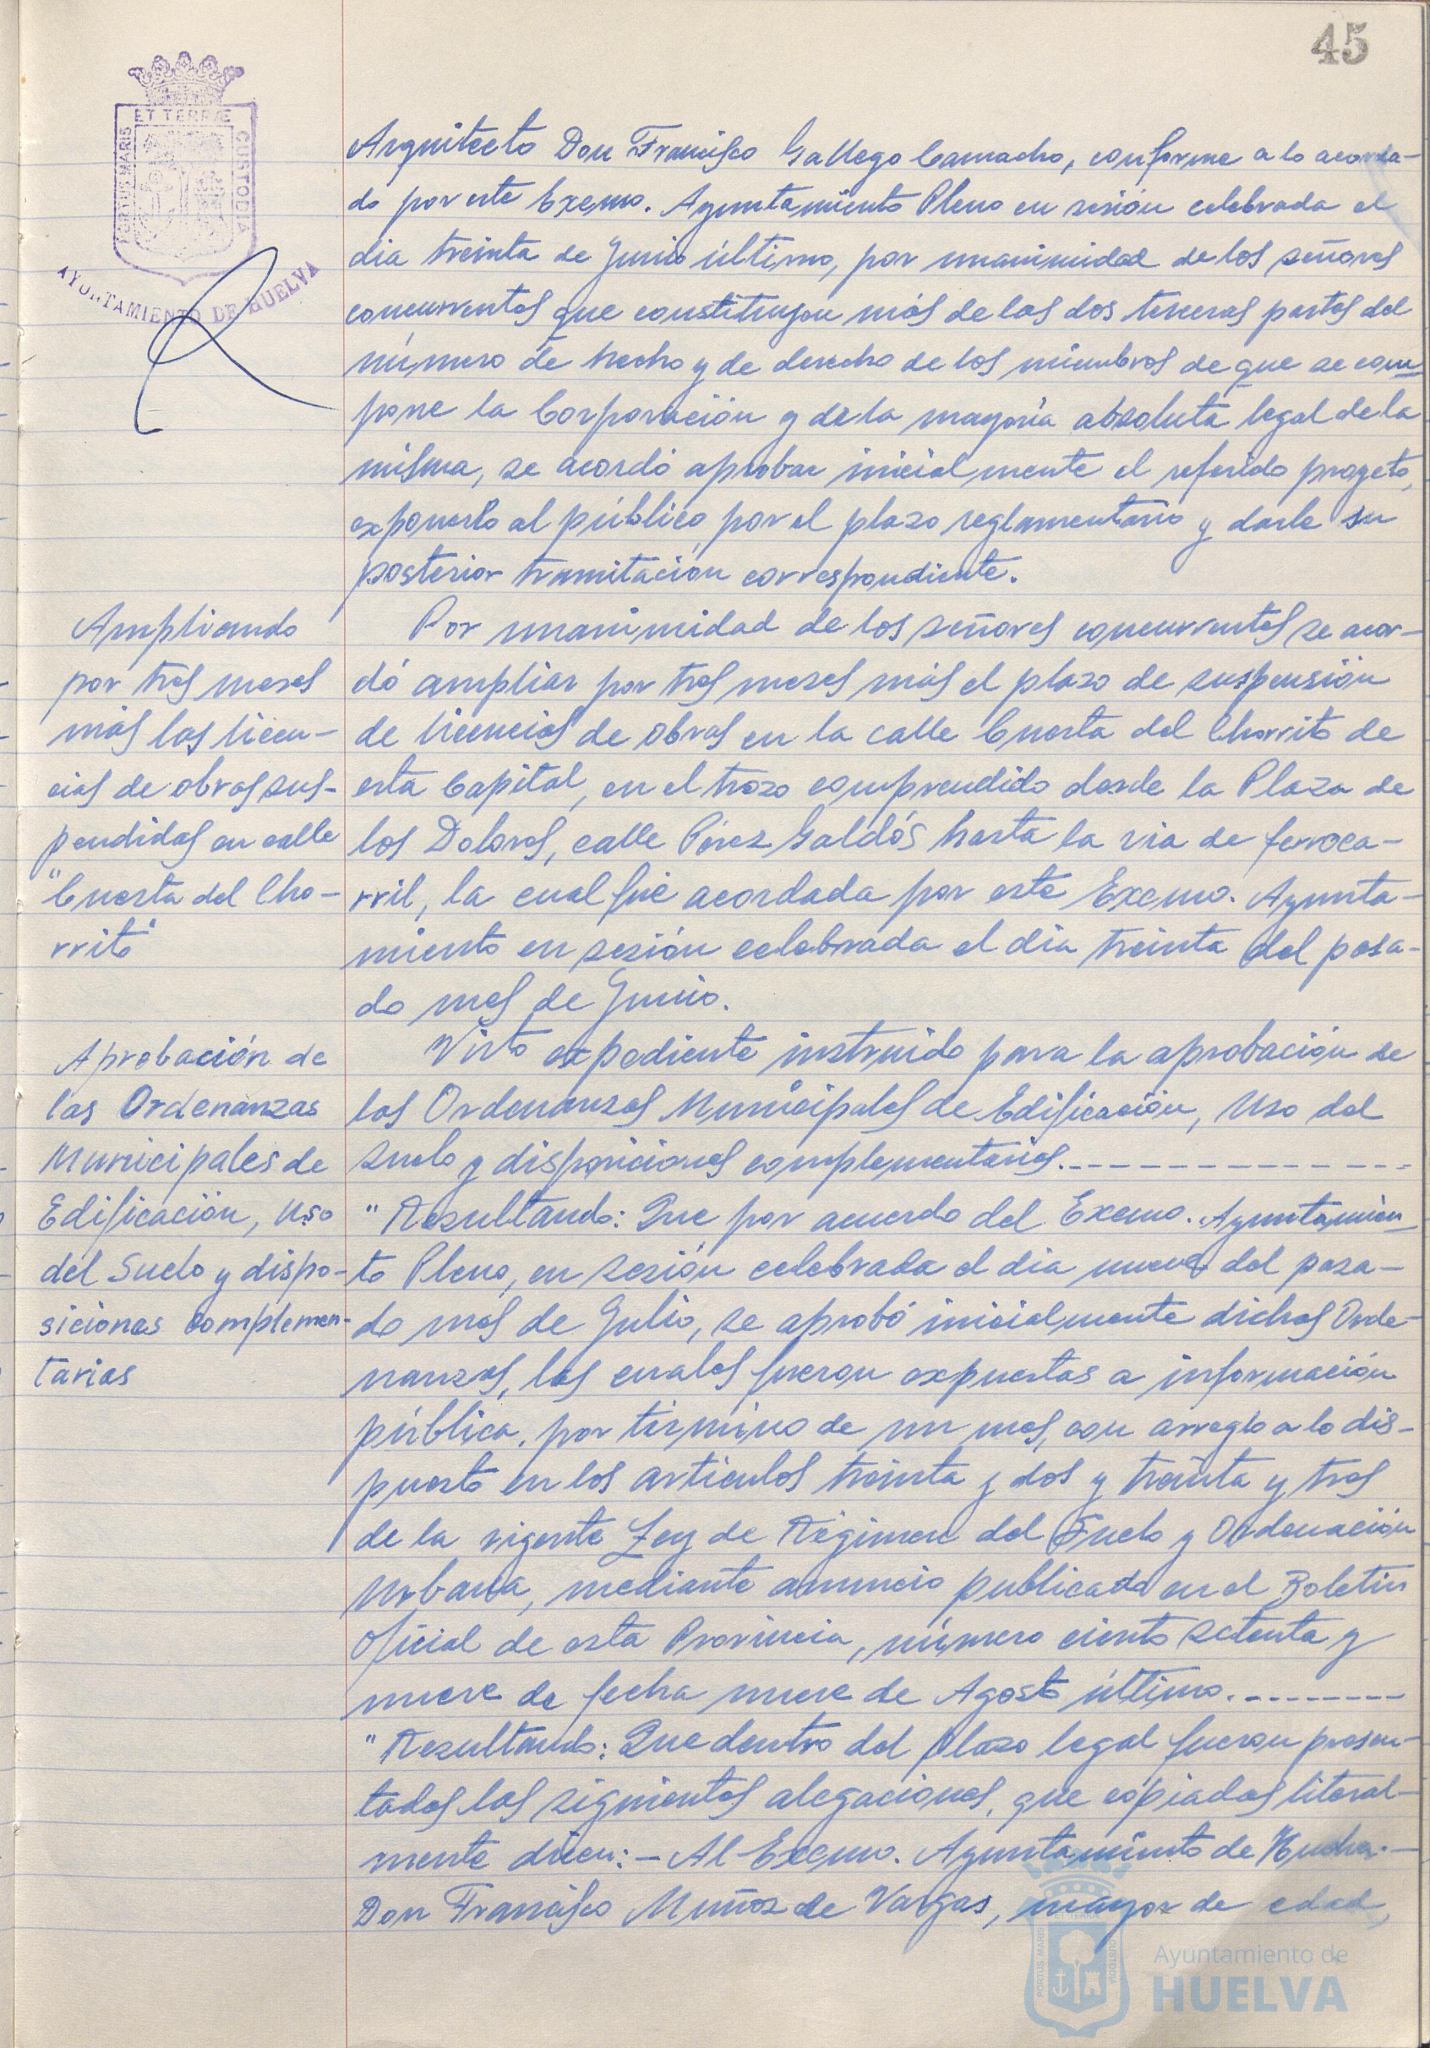 45
PORTUS MARIS ET TERRÆ CUSTODIA
AYUNTAMIENTO DE HUELVA
Arquitecto Don Francisco Gallego Camacho, conforme a lo acorda-
do por este Excmo. Ayuntamiento Pleno en sesión celebrada el
dia treinta de Junio último, por unanimidad de los señores
concurrentes que constituyen más de las dos terceras partes del
número de hecho y de derecho de los miembros de que se com
pone la Corporación y de la mayoría absoluta legal de la
misma, se acordó aprobar inicialmente el referido proyecto,
exponerlo al público, por el plazo reglamentario y darle su
posterior tramitación correspondiente.
Ampliando
por tres meses
más las licen-
cias de obras sus-
pendidas en calle
"Cuesta del Cho-
rrito"
Por unanimidad de los señores concurrentes se acor-
dó ampliar por tres meses más el plazo de suspensión
de licencias de obras en la calle Cuesta del Chorrito de
esta Capital, en el trozo comprendido desde la Plaza de
los Dolores, calle Pérez Galdós hasta la via de ferroca-
rril, la cual fué acordada por este Excmo. Ayunta-
miento en sesión celebrada el dia treinta del pasa-
do mes de Junio.
Aprobación de
las Ordenanzas
Municipales de
Edificación, Uso
del Suelo y dispo-
siciones complemen-
tarias
Visto expediente instruido para la aprobación de
las Ordenanzas Municipales de Edificación, Uso del
Suelo y disposiciones complementarias.--------------
"Resultando: Que por acuerdo del Excmo. Ayuntamien
to Pleno, en sesión celebrada el dia nueve del pasa-
do mes de Julio, se aprobó inicialmente dichas Orde-
nanzas, las cuales fueron expuestas a información
pública, por término de un mes, con arreglo a lo dis-
puesto en los artículos treinta y dos y treinta y tres
de la vigente Ley de Régimen del Suelo y Ordenación
Urbana, mediante anuncio publicado en el Boletín
Oficial de esta Provincia, número ciento setenta y
nueve de fecha nueve de Agosto último.---------
"Resultando: Que dentro del plazo legal fueron presen-
tadas las siguientes alegaciones, que copiadas literal-
mente dicen: - Al Excmo. Ayuntamiento de Huelva.-
Don Francisco Muñoz de Vargas, mayor de edad,
PORTUS MARIS CUSTODIA
Ayuntamiento de
HUELVA